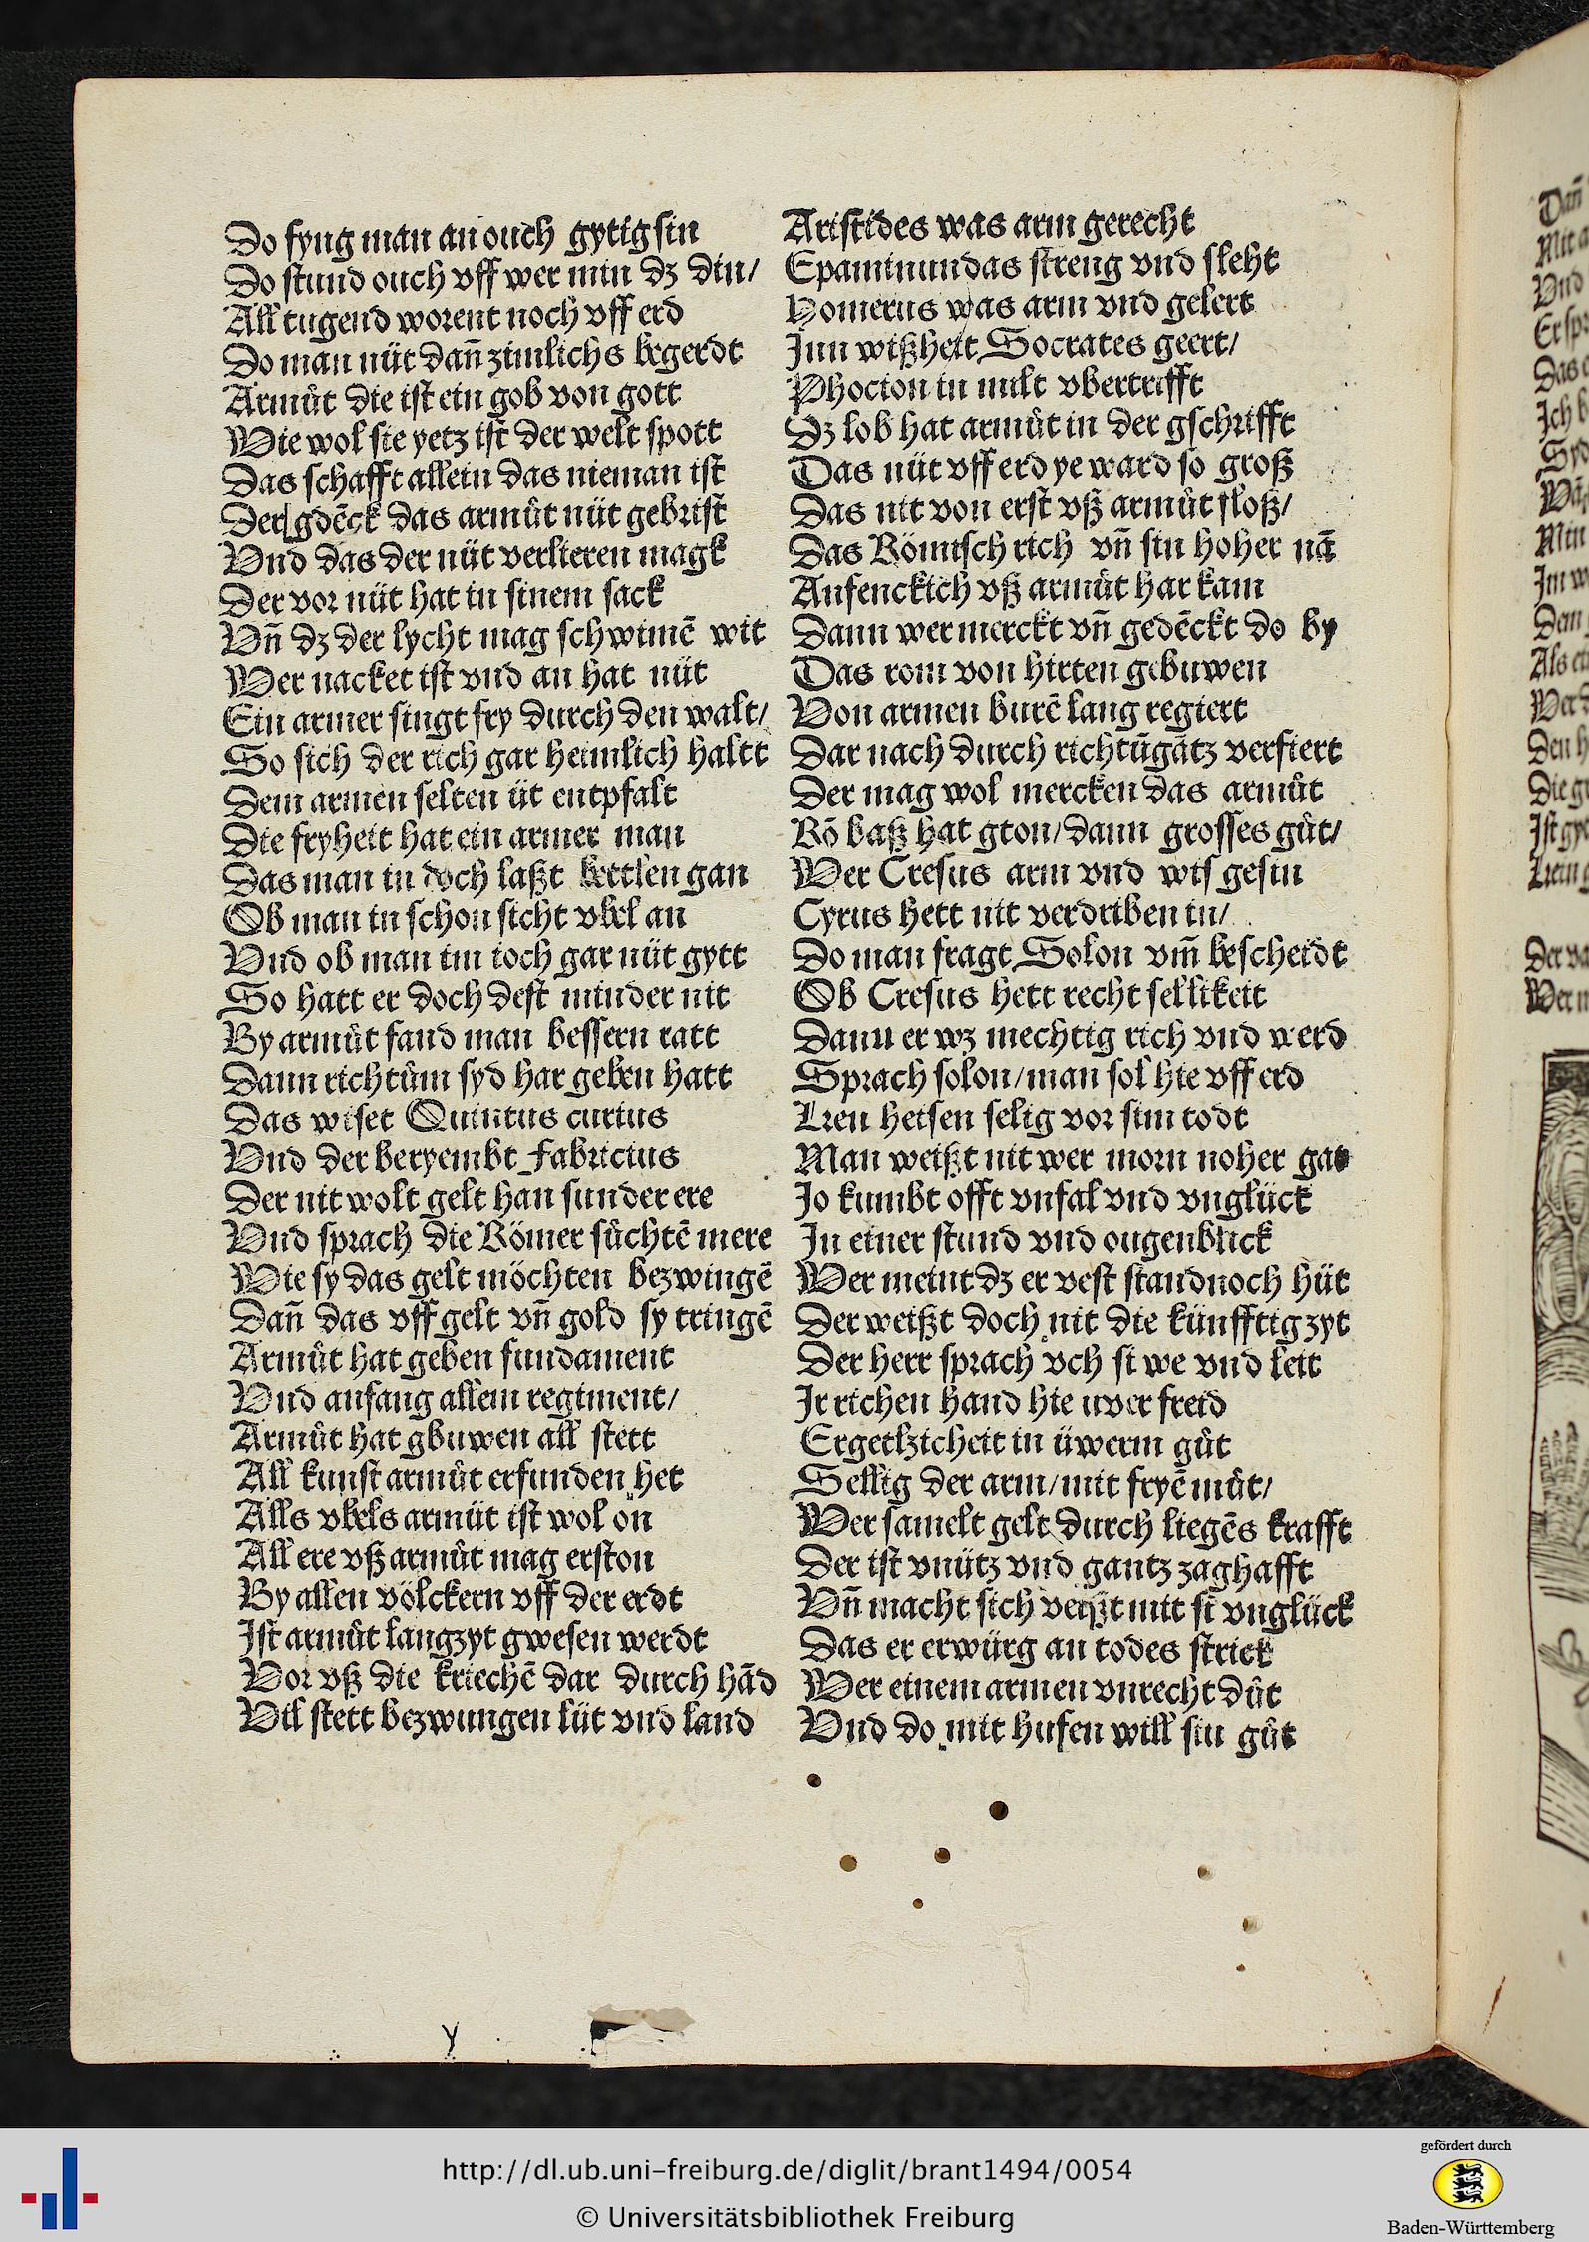 Do fyng man an ouch gytig sin
Do stund ouch vff wer min dz din/
All tugend worent noch vff erd
Do man nüt dañ zimlichs begerdt
Armůt die ist ein gob von gott
Wie wol sie yetz ist der welt spott
Das schafft allein das nieman ist
Der gdēck das armůt nüt gebrist
Vnd das der nüt verlieren magk
Der vor nüt hat in sinem sack
Vn̄ dz der lycht mag schwimē wit
Wer nacket ist vnd an hat nüt
Ein armer singt fry durch den walt/
So sich der rich gar heimlich haltt
Dem armen selten üt entpfalt
Die fryheit hat ein armer man
Das man in doch laßt bettlen gan
Ob man in schon sicht vbel an
Vnd ob man im ioch gar nüt gytt
So hatt er doch dest minder nit
By armůt fand man bessern ratt
Dann richtům syd har geben hatt
Das wiset Quintus curius
Vnd der beryembt Fabricius
Der nit wolt gelt han sunder ere
Vnd sprach die Römer sůchtē mere
Wie sy das gelt möchten bezwingē
Dañ das vff gelt vn̄ gold sy tringē
Armůt hat geben fundament
Vnd anfang allem regiment/
Armůt hat gbuwen all stett
All kunst armůt erfunden het
Alls vbels armüt ist wol on
All ere vß armůt mag erston
By allen völckern vff der erdt
Ist armůt langzyt gwesen werdt
Vor vß die kriechē dar durch hād
Vil stett bezwungen lüt vnd land
Aristides was arm gerecht
Epaminundas streng vnd sleht
Homerus was arm vnd gelert
Inn wißheit Socrates geert/
Phocion in milt vbertrifft
Dz lob hat armůt in der gschrifft
Das nüt vff erd ye ward so groß
Das nit von erst vß armůt floß/
Das Römisch rich vn̄ sin hoher nā
Anfencklich vß armůt har kam
Dann wer merckt vn̄ gedēckt do by
Das rom von hirten gebuwen
Von armen burē lang regiert
Dar nach durch richtūgātz verfiert
Der mag wol mercken das armůt
Rō baß hat gton/dann grosses gůt/
Wer Cresus arm vnd wis gesin
Cyrus hett nit verdriben in/
Do man fragt Solon vm̄ bescheidt
Ob Cresus hett recht sellikeit
Dann er wz mechtig rich vnd werd
Sprach solon/man sol hie vff erd
Kein heisen selig vor sim todt
Man weißt nit wer morn noher gat
Jo kumbt offt vnfal vnd vnglück
In einer stund vnd ougenblick
Wer meint dz er vest stand noch hüt
Der weißt doch nit die künfftig zyt
Der herr sprach vch si we vnd leit
Ir richen hand hie uwer freid
Ergetlzicheit in üwerm gůt
Sellig der arm/mit fryē můt/
Wer samelt gelt durch liegēs krafft
Der ist vnütz vnd gantz zaghafft
Vn̄ macht sich veyßt mit sī vnglück
Das er erwürg an todes strick
Wer einem armen vnrecht důt
Vnd do mit hufen will sin gůt
y
http://dl.ub.uni-freiburg.de/diglit/brant1494/0054
© Universitätsbibliothek Freiburg
gefördert durch
Baden-Württemberg